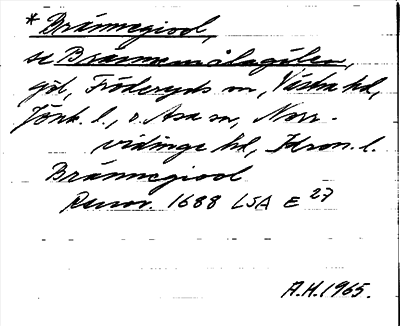 * Brännegiöl,
se Brännemålagölen,
gd, Fröderyds sn, Västra hd,
Jönk. l., o. Asa sn, Norr-
vidinge hd, Kron. l.
Brännegiööl
Renov. 1688 LSA E 27
A.H. 1965.